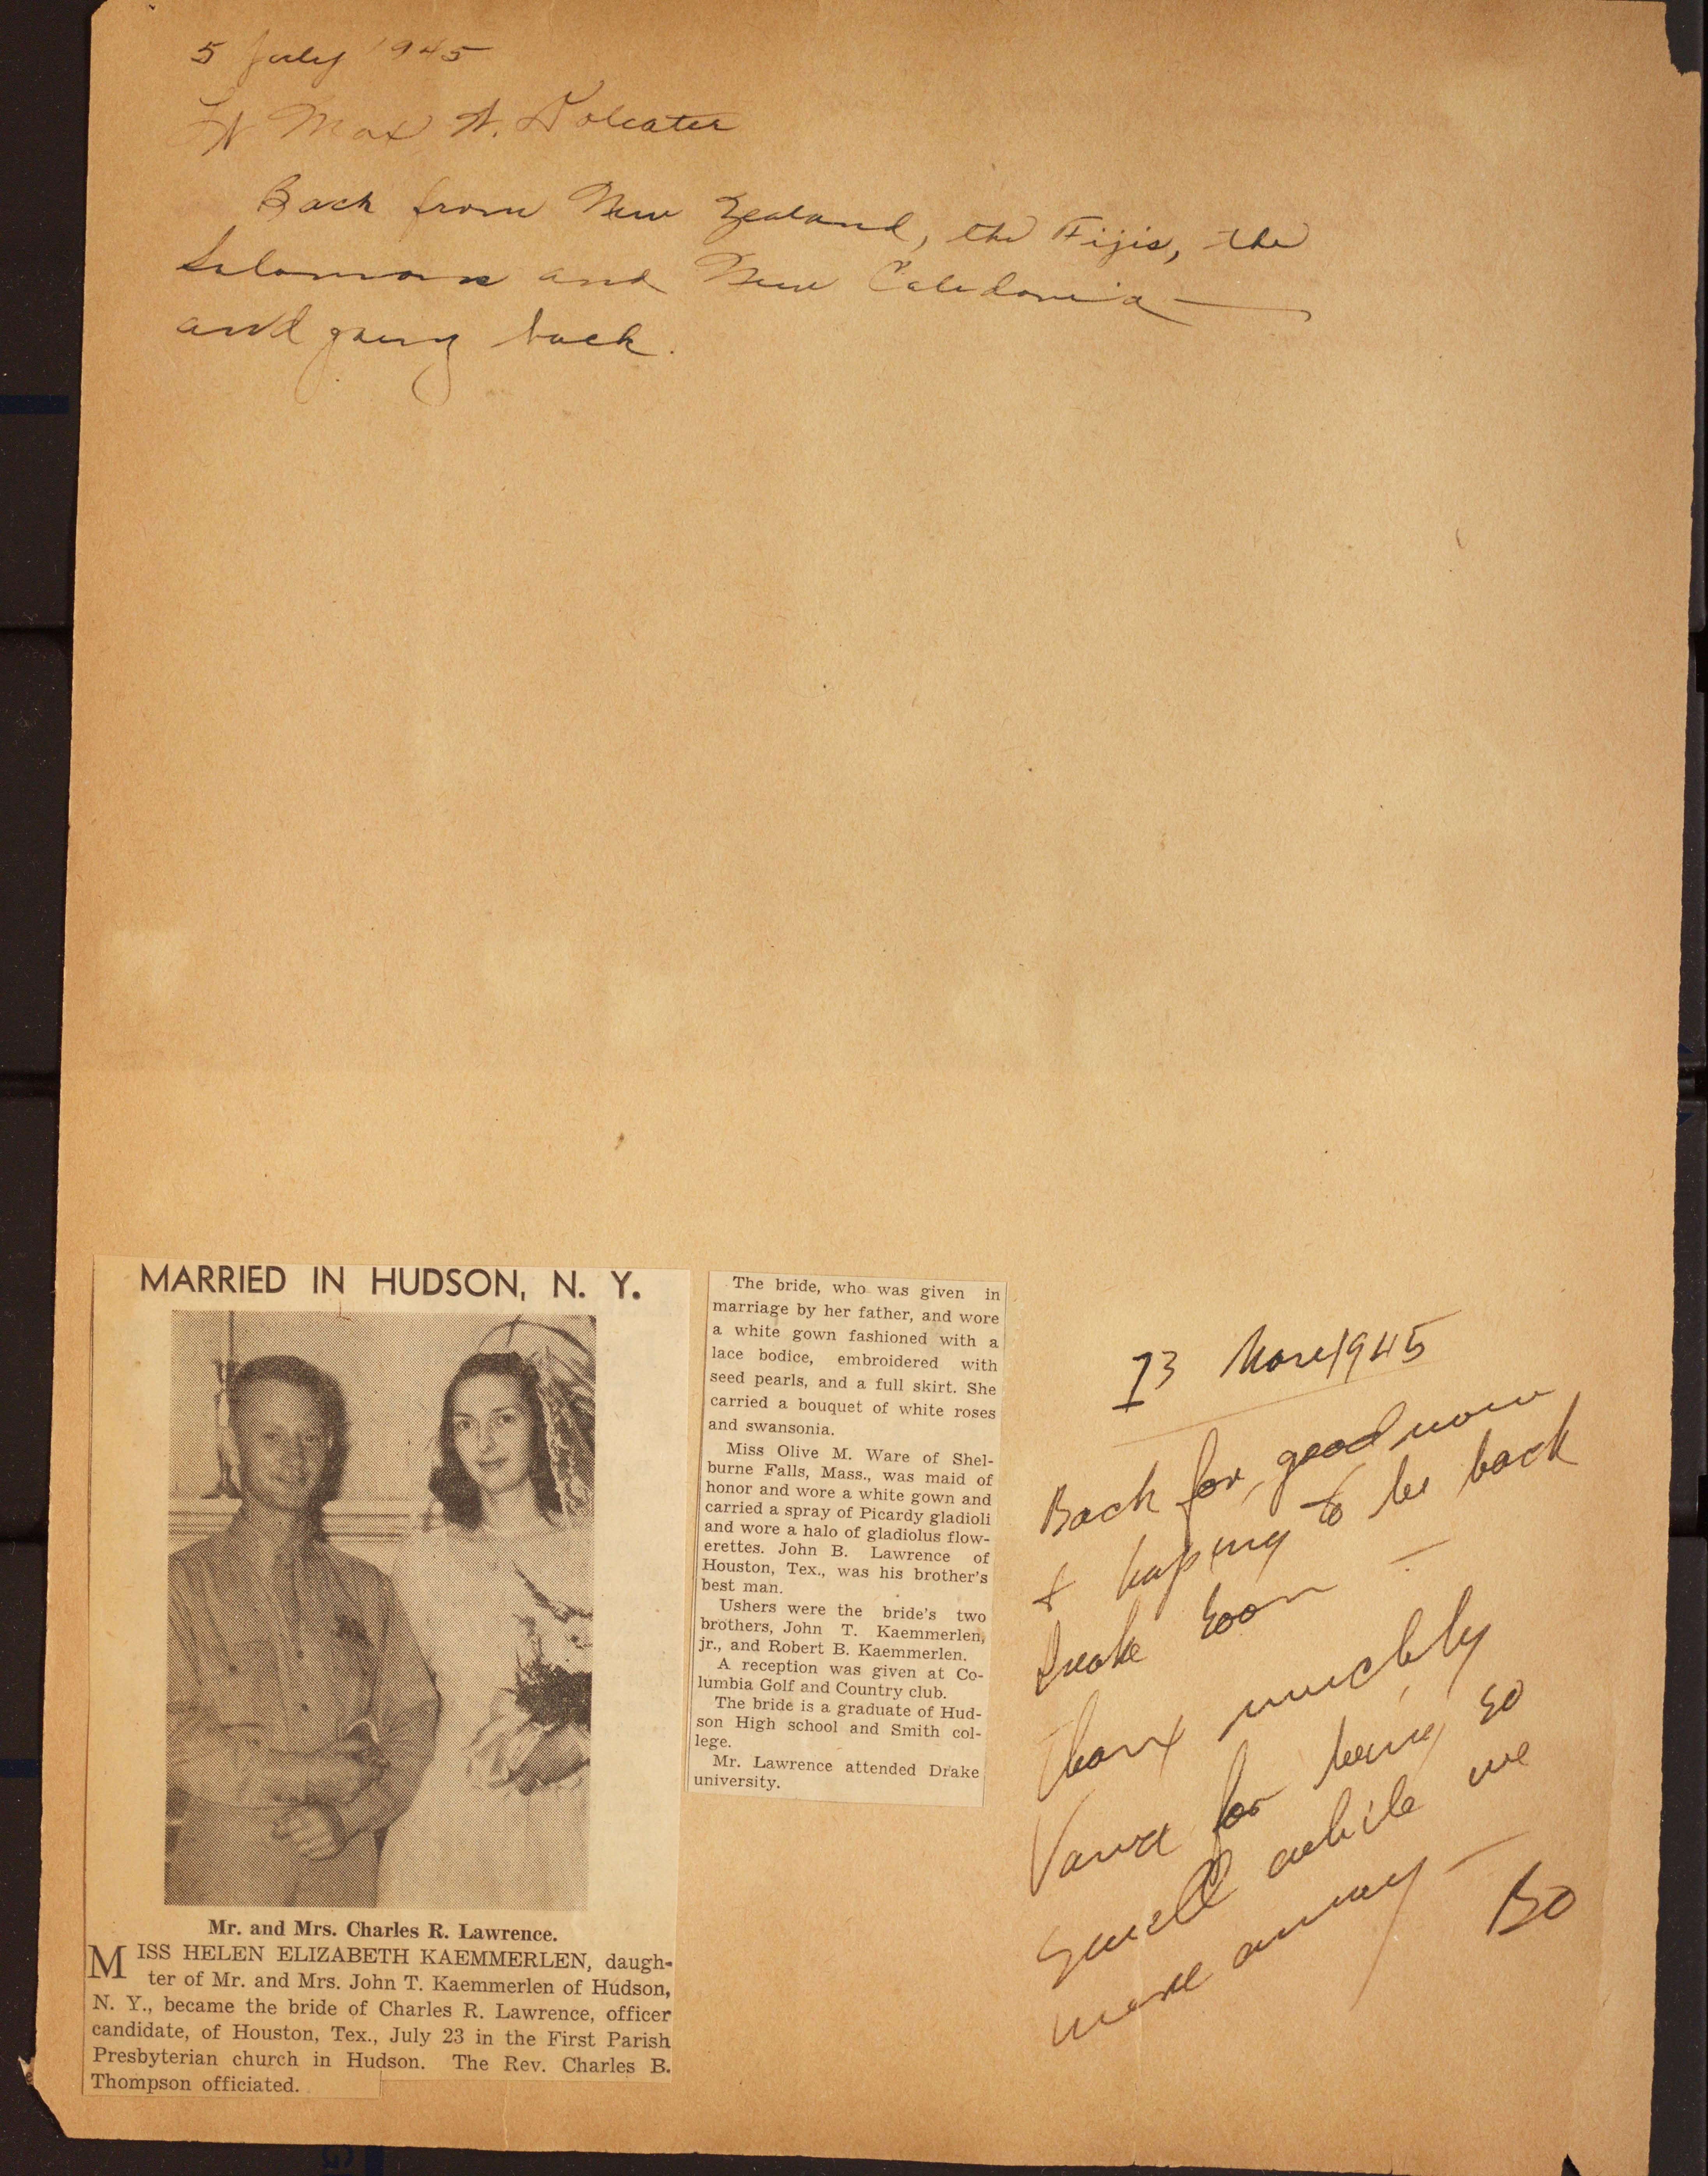 5 July 1945
Lt Max A.
Back from New Zealand, the Fijis, the
Solomons and New Caledonia —
and going back.
MARRIED IN HUDSON, N. Y.
Mr. and Mrs. Charles R. Lawrence.
MISS HELEN ELIZABETH KAEMMERLEN, daugh-
ter of Mr. and Mrs. John T. Kaemmerlen of Hudson,
N. Y., became the bride of Charles R. Lawrence, officer
candidate, of Houston, Tex., July 23 in the First Parish
Presbyterian church in Hudson. The Rev. Charles B.
Thompson officiated.
The bride, who was given in
marriage by her father, and wore
a white gown fashioned with a
lace bodice, embroidered with
seed pearls, and a full skirt. She
carried a bouquet of white roses
and swansonia.
Miss Olive M. Ware of Shel-
burne Falls, Mass., was maid of
honor and wore a white gown and
carried a spray of Picardy gladioli
and wore a halo of gladiolus flow-
erettes. John B. Lawrence of
Houston, Tex., was his brother's
best man.
Ushers were the bride's two
brothers, John T. Kaemmerlen,
jr., and Robert B. Kaemmerlen.
A reception was given at Co-
lumbia Golf and Country club.
The bride is a graduate of Hud-
son High school and Smith col-
lege.
Mr. Lawrence attended Drake
university.
1945
Back for good now
& hoping to be back
Drake soon —
Thanx muchly
for being so
swell while we
were away —
BO